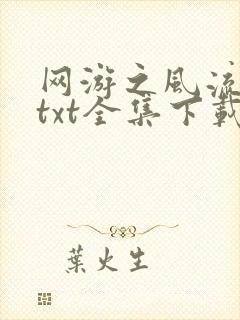 网游之风流
txt全集下载
葉火生